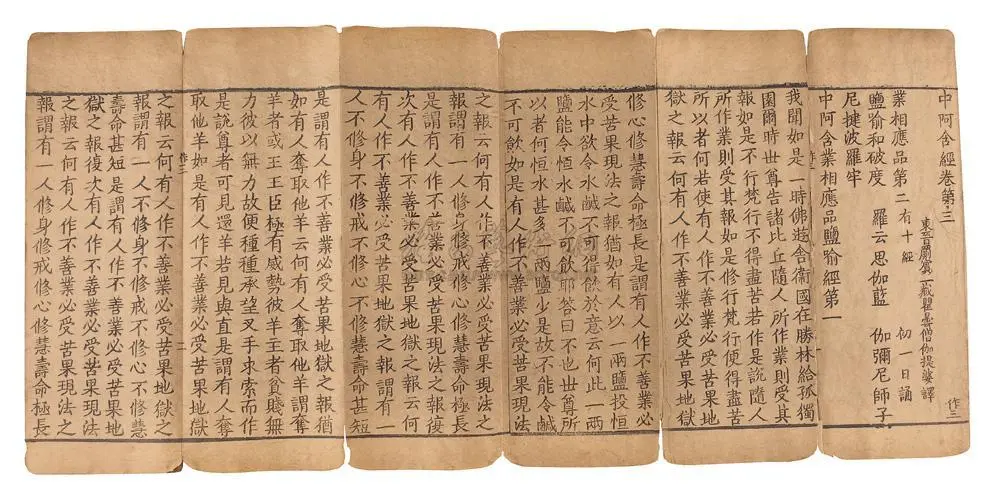 中阿含經卷第三
作三
東晉罽賓三藏瞿曇僧伽提婆譯
業相應品第二有十經 初一日誦
鹽喻和破度 羅云思伽藍 伽彌尼師子
尼揵波羅牢
中阿含業相應品鹽喻經第一
我聞如是一時佛遊舍衛國在勝林給孤獨
園爾時世尊告諸比丘隨人所作業則受其
報如是不行梵行不得盡苦若作是說隨人
所作業則受其報如是修行梵行便得盡苦
所以者何若使有人作不善業必受苦果地
獄之報云何有人作不善業必受苦果地獄
修心修慧壽命極長是謂有人作不善業必
受苦果現法之報猶如有人以一兩鹽投恒
水中欲令水鹹不可得飲於意云何此一兩
鹽能令恒水鹹不可飲耶答曰不也世尊所
以者何恒水甚多一兩鹽少是故不能令鹹
不可飲如是有人作不善業必受苦果現法
之報云何有人作不善業必受苦果現法之
報謂有一人修身修戒修心修慧壽命極長
是謂有人作不善業必受苦果現法之報復
次有人作不善業必受苦果地獄之報云何
有人作不善業必受苦果地獄之報謂有一
人不修身不修戒不修心不修慧壽命甚短
是謂有人作不善業必受苦果地獄之報猶
如有人奪取他羊云何有人奪取他羊謂奪
羊者或王王臣極有威勢彼羊主者貧賤無
力彼以無力故便種種承望叉手求索而作
是說尊者可見還羊若見與直是謂有人奪
取他羊如是有人作不善業必受苦果地獄
作三 二
之報云何有人作不善業必受苦果地獄之
報謂有一人不修身不修戒不修心不修慧
壽命甚短是謂有人作不善業必受苦果地
獄之報復次有人作不善業必受苦果現法
之報云何有人作不善業必受苦果現法之
報謂有一人修身修戒修心修慧壽命極長